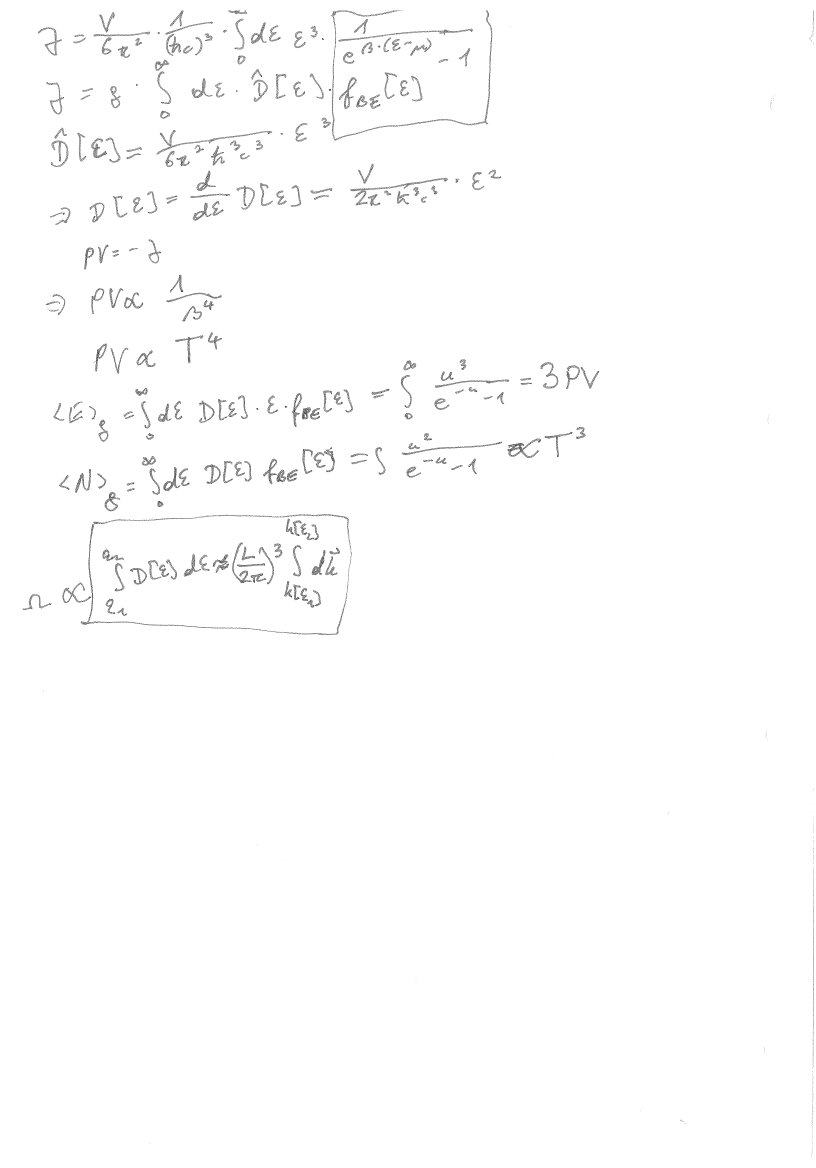 J = V/(6π²) · 1/(ħc)³ · ∫₀^∞ dε ε³ · 1/(e^{β·(ε-μ)} - 1)
J = g · ∫₀^∞ dε · D̂[ε] · f_BE[ε]
D̂[ε] = V/(6π²ħ³c³) · ε³
⇒ D[ε] = d/dε D[ε] = V/(2π²ħ³c³) · ε²
pV = - J
⇒ PV ∝ 1/β⁴
PV ∝ T⁴
<E>_g = ∫₀^∞ dε D[ε] · ε · f_BE[ε] = ∫₀^∞ u³/(e^{-u} - 1) = 3PV
<N>_g = ∫₀^∞ dε D[ε] f_BE[ε] = ∫ u²/(e^{-u} - 1) ∝ T³
Ω ∝ ∫ D[ε] dε ≈ (L/2π)³ ∫_{k[ε₁]}^{k[ε₂]} dk⃗